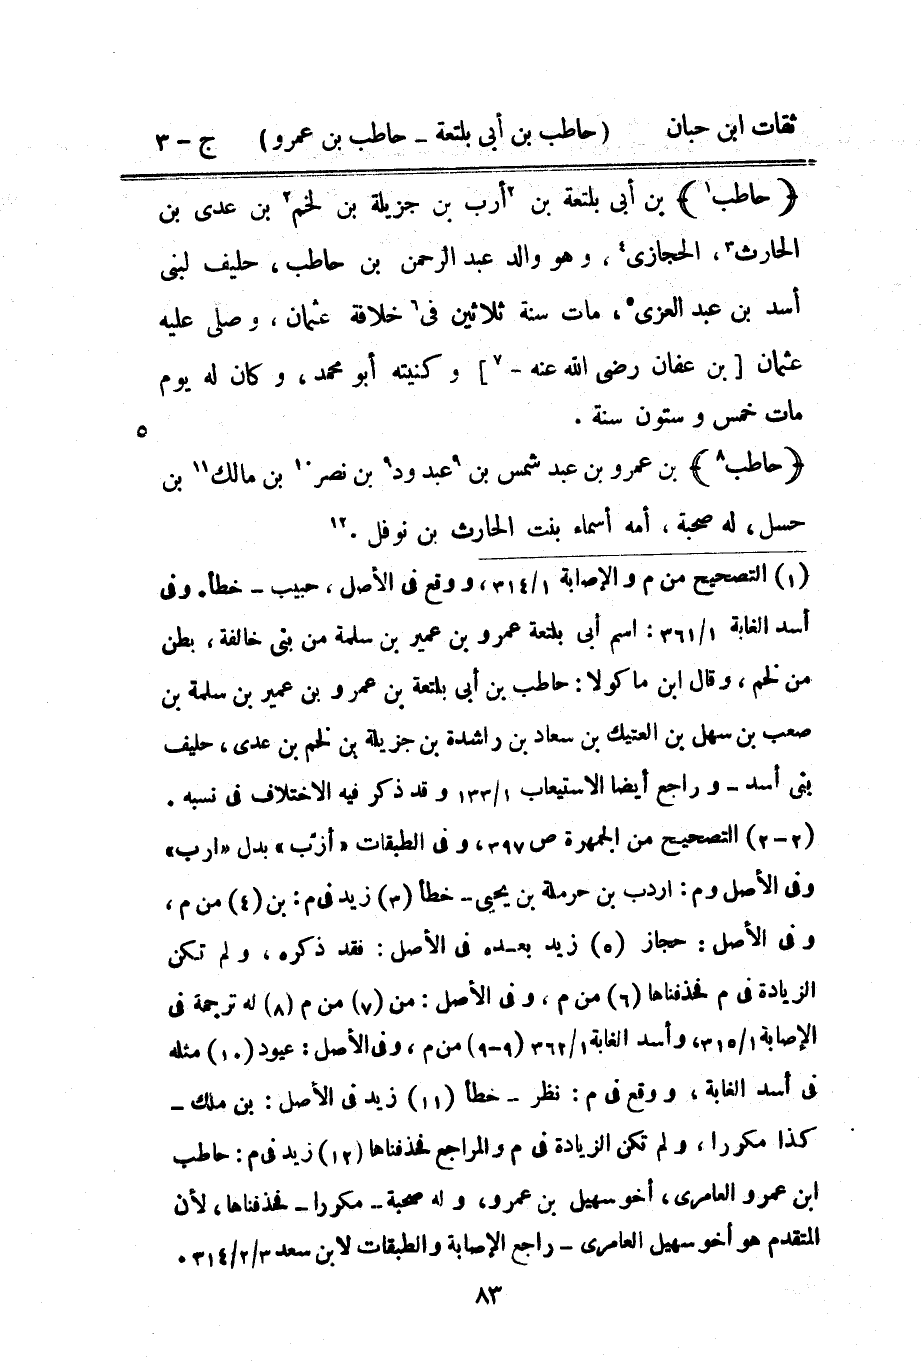 ثقات ابن حبان (حاطب بن أبى بلتعة ــ حاطب بن عمرو) ج – ٣
﴿ حاطب١ ﴾ بن أبى بلتعة بن ٢أرب بن جزيلة بن لخم٢ بن عدى بن
الحارث٣، الحجازى٤، و هو والد عبد الرحمن بن حاطب، حليف لبنى
أسد بن عبد العزى٥، مات سنة ثلاثين فى٦ خلافة عثمان، و صلى عليه
عثمان [ بن عفان رضى الله عنه -٧ ] و كنيته أبو محمد، و كان له يوم
مات خمس و ستون سنة .
٥
﴿ حاطب٨ ﴾ بن عمرو بن عبد شمس بن ٩عبد ود٩ بن نصر١٠ بن مالك١١ بن
حسل، له صحبة، أمه أسماء بنت الحارث بن نوفل .١٢
(١) التصحيح من م و الإصابة ٣١٤/١، و وقع فى الأصل، حبيب ــ خطأ. وفى
أسد الغابة ٣٦١/١ : اسم أبى بلتعة عمرو بن عمير بن سلمة من بنى خالفة، بطن
من لخم، و قال ابن ماكولا: حاطب بن أبى بلتعة بن عمرو بن عمير بن سلمة بن
صعب بن سهل بن العتيك بن سعاد بن راشدة بن جزيلة بن لخم بن عدى، حليف
بنى أسد ــ و راجع أيضا الاستيعاب ١٣٣/١ و قد ذكر فيه الاختلاف فى نسبه .
(٢–٢) التصحيح من الجمهرة ص ٣٩٧، و فى الطبقات «أزب» بدل «ارب»
وفى الأصل و م : اردب بن حرملة بن يحيى ــ خطأ (٣) زيد فى م : بن (٤) من م،
و فى الأصل : حجاز (٥) زيد بعده فى الأصل : فقد ذكره، و لم تكن
الزيادة فى م فحذفناها (٦) من م، و فى الأصل : من (٧) من م (٨) له ترجمة فى
الإصابة ٣١٥/١، و أسد الغابة ٣٦٢/١ (٩–٩) من م، وفى الأصل : عبود (١٠) مثله
فى أسد الغابة، و وقع فى م : نظر ــ خطأ (١١) زيد فى الأصل : بن ملك ــ
كذا مكررا، و لم تكن الزيادة فى م والمراجع فحذفناها (١٢) زيد فى م : حاطب
ابن عمرو العامرى، أخو سهيل بن عمرو، و له صحبة ــ مكررا ــ فحذفناها، لأن
المتقدم هو أخو سهيل العامرى ــ راجع الإصابة والطبقات لابن سعد ٣١٤/٢/٣ .
٨٣